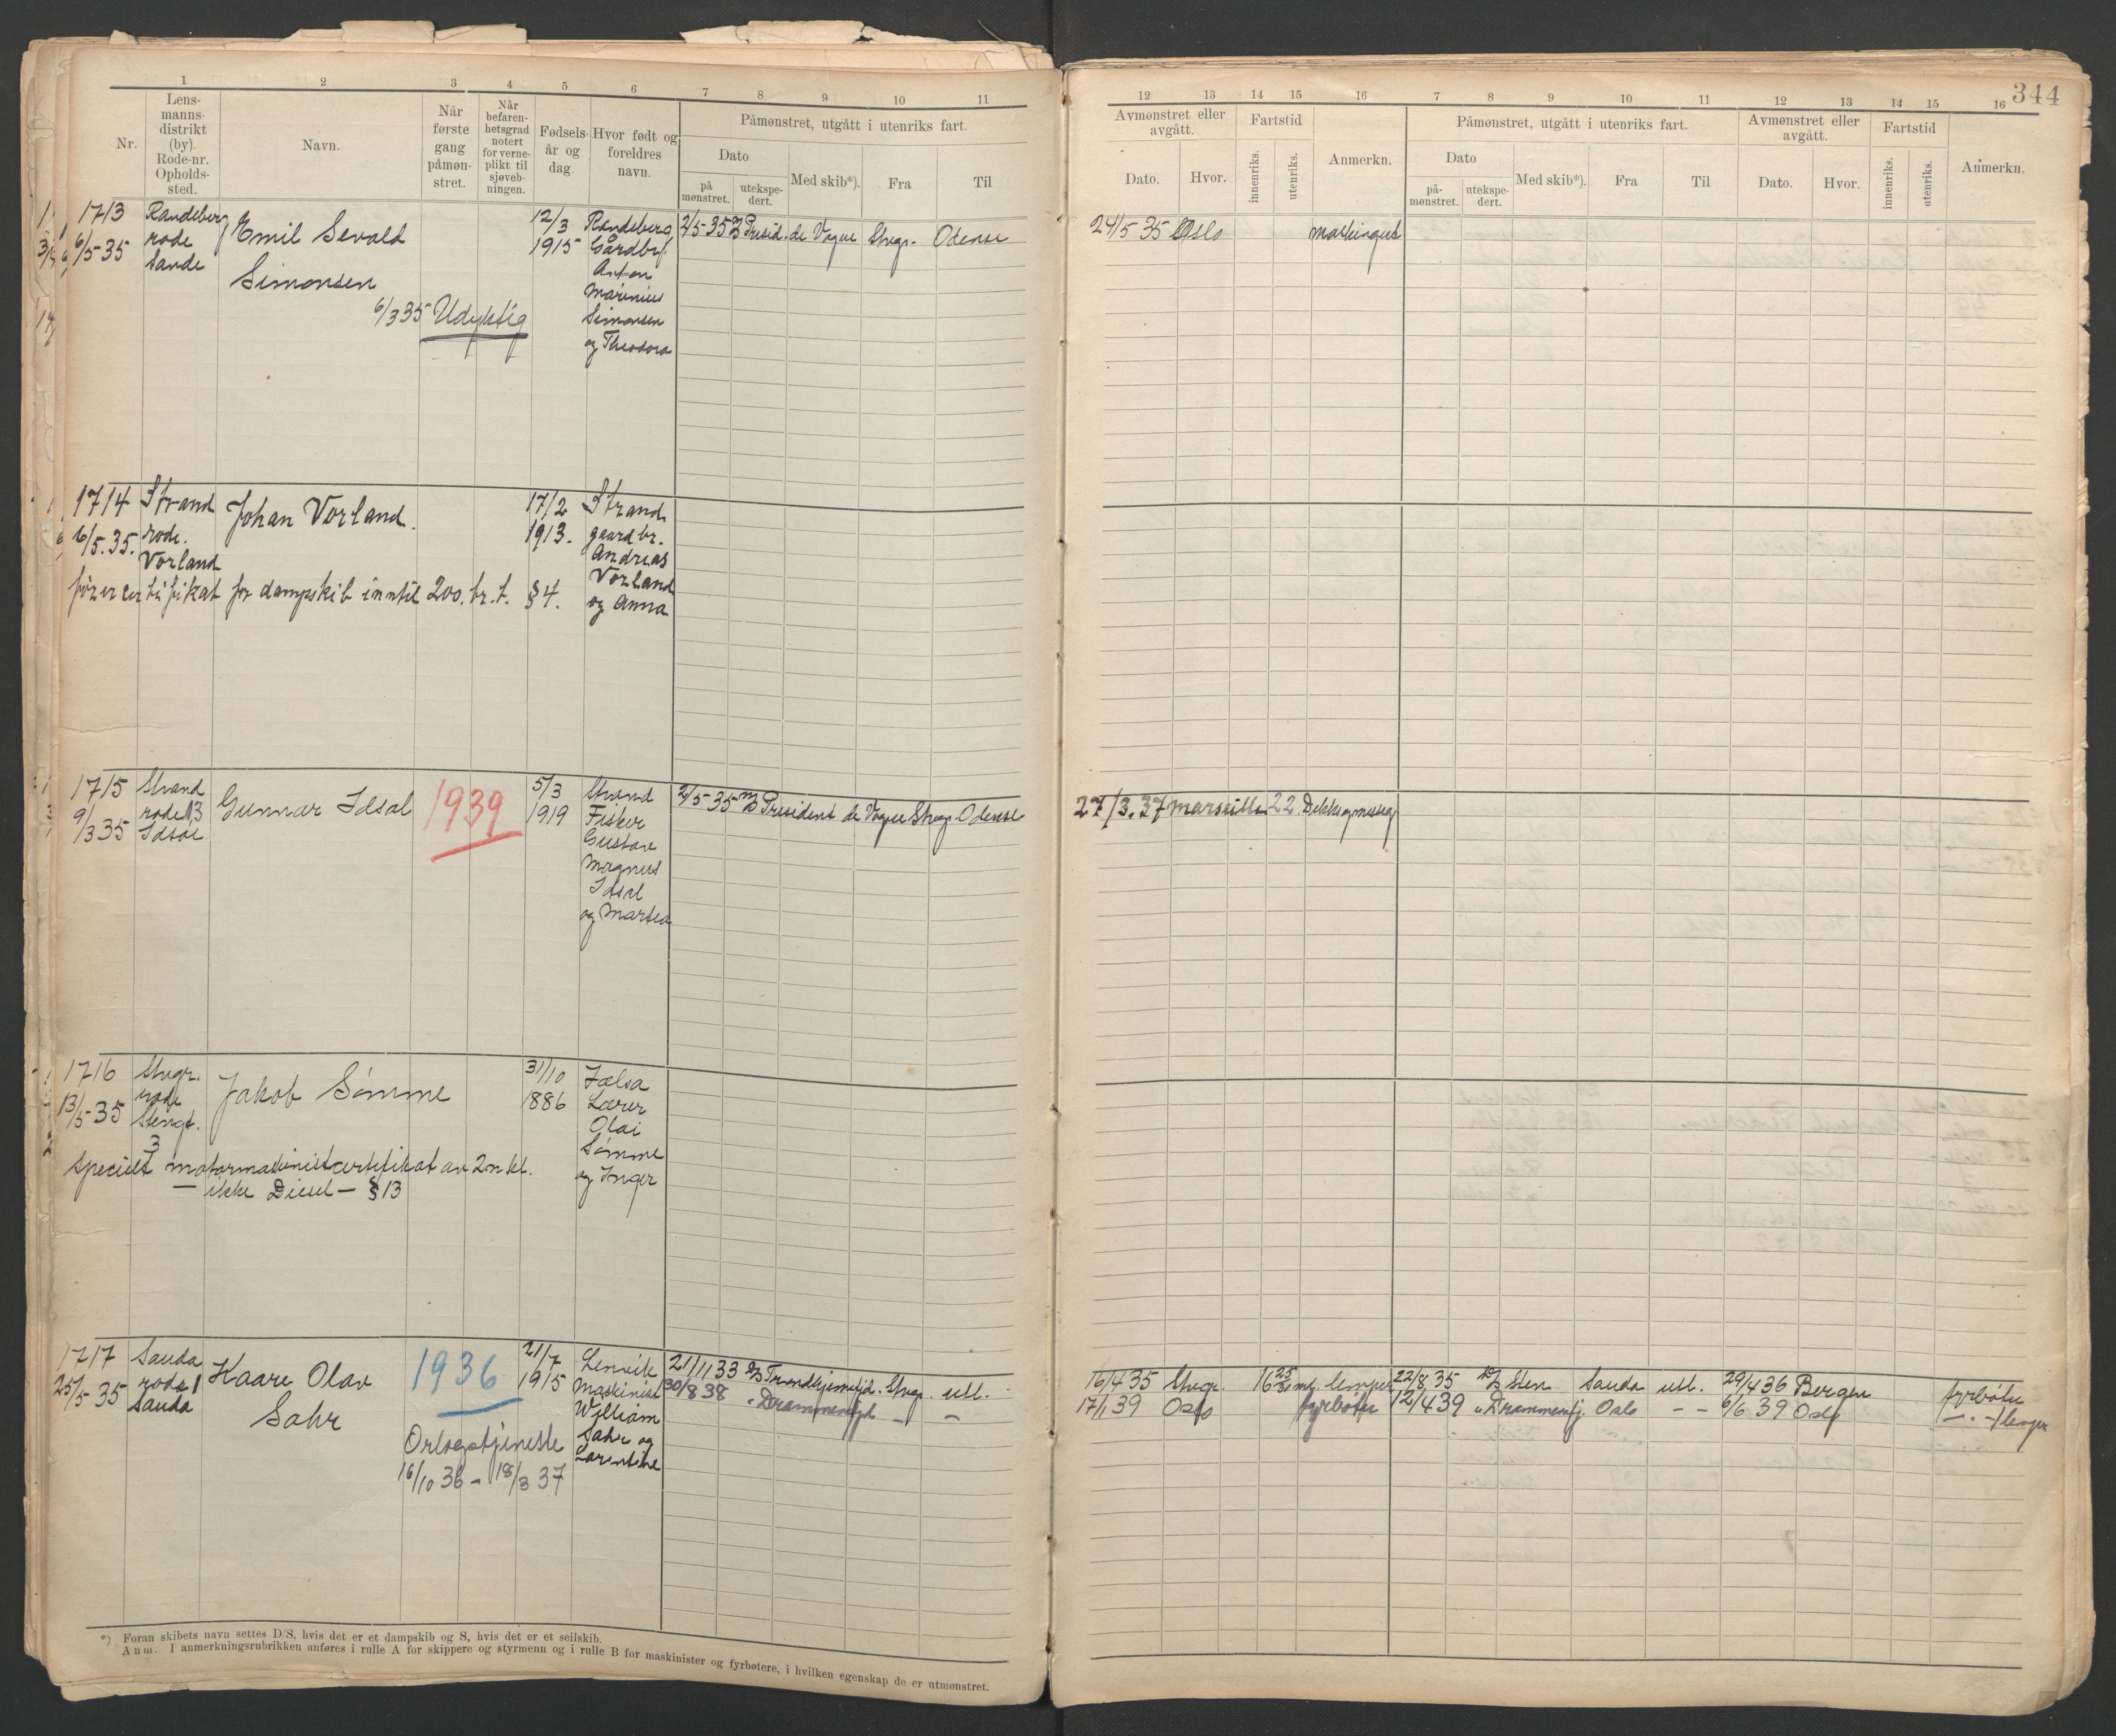 344
1 2 3 4 5 6 7 8 9 10 11
Nr.
Lens-
manns-
distrikt
(by).
Rode-nr.
Opholds-
sted.
Navn.
Når
første
gang
påmøn-
stret.
Når
befaren-
hetsgrad
notert
for verne-
plikt til
sjøveb-
ningen.
Fødsels-
år og
dag.
Hvor født og
foreldres
navn.
Påmønstret, utgått i utenriks fart.
Dato
på
mønstret.
utekspe-
dert.
Med skib*).
Fra
Til
12 13 14 15 16 7 8 9 10 11 12 13 14 15 16
Avmønstret eller
avgått.
Dato.
Hvor.
Fartstid
innenriks.
utenriks.
Anmerkn.
Påmønstret, utgått i utenriks fart.
Dato
på-
mønstret.
utekspe-
dert.
Med skib*).
Fra
Til
Avmønstret eller
avgått.
Dato.
Hvor.
Fartstid
innenriks.
utenriks.
Anmerkn.
1713
6/5-35
Randeberg
rode
Sande
Emil Sevald
Simonsen
6/3 35 Udyktig
12/3
1915
Randeberg
Gårdbr.
Anton
Marinius
Simonsen
og Theodora
2/5-35 Presid. de Vogue Stvgr. Odense
24/5-35 Oslo maskingut
1714
6/5.35.
Strand
rode.
Vorland
Johan Vorland.
17/2
1913.
Strand
gaardbr.
Andreas
Vorland
og Anna
fører certifikat for dampskib inntil 200. br. t. §4.
1715
9/3 35
Strand
rode 13
Idsøe
Gunnar Idsal
1939
5/3
1919
Strand
Fisker
Gustav
Magnus
Idsal
og Martea
2/5-35 President de Vogue Stvgr. Odense
27/3.37 Marseille 22 Dekks og messeg
1716
13/5-35
Stvgr.
rode
Stengt.
3
Jakob Sømme
31/10
1886
Jælsa
Lærer
Olai
Sømme
og Inger
specielt motormaskinistcertifikat av 2n kl.
— ikke Diesel — §13
1717
25/5-35
Sauda
rode 1
Sauda
Kaare Olav
Sahr
1936
Orlogstjeneste
16/10 36 - 18/3 37
21/7
1915
Lenvik
Maskinist
William
Sahr og
Larentine
21/11 33 Trondhjemsfjd. Stvgr. utl.
30/8 38 " Drammensfjd — —
16/4 35 Stvgr. 16 25/30 md. lemper 22/8 35 Sten Sauda utl. 29/4 36 Bergen fyrbøter
17/1 39 Oslo fyrbøter 12/4 39 " Drammensfj. Oslo — — 6/6 39 Oslo — " — /lemper
*) Foran skibets navn settes D/S, hvis det er et dampskib og S, hvis det er et seilskib.
Anm. I anmerkningsrubrikken anføres i rulle A for skippere og styrmenn og i rulle B for maskinister og fyrbøtere, i hvilken egenskap de er utmønstret.